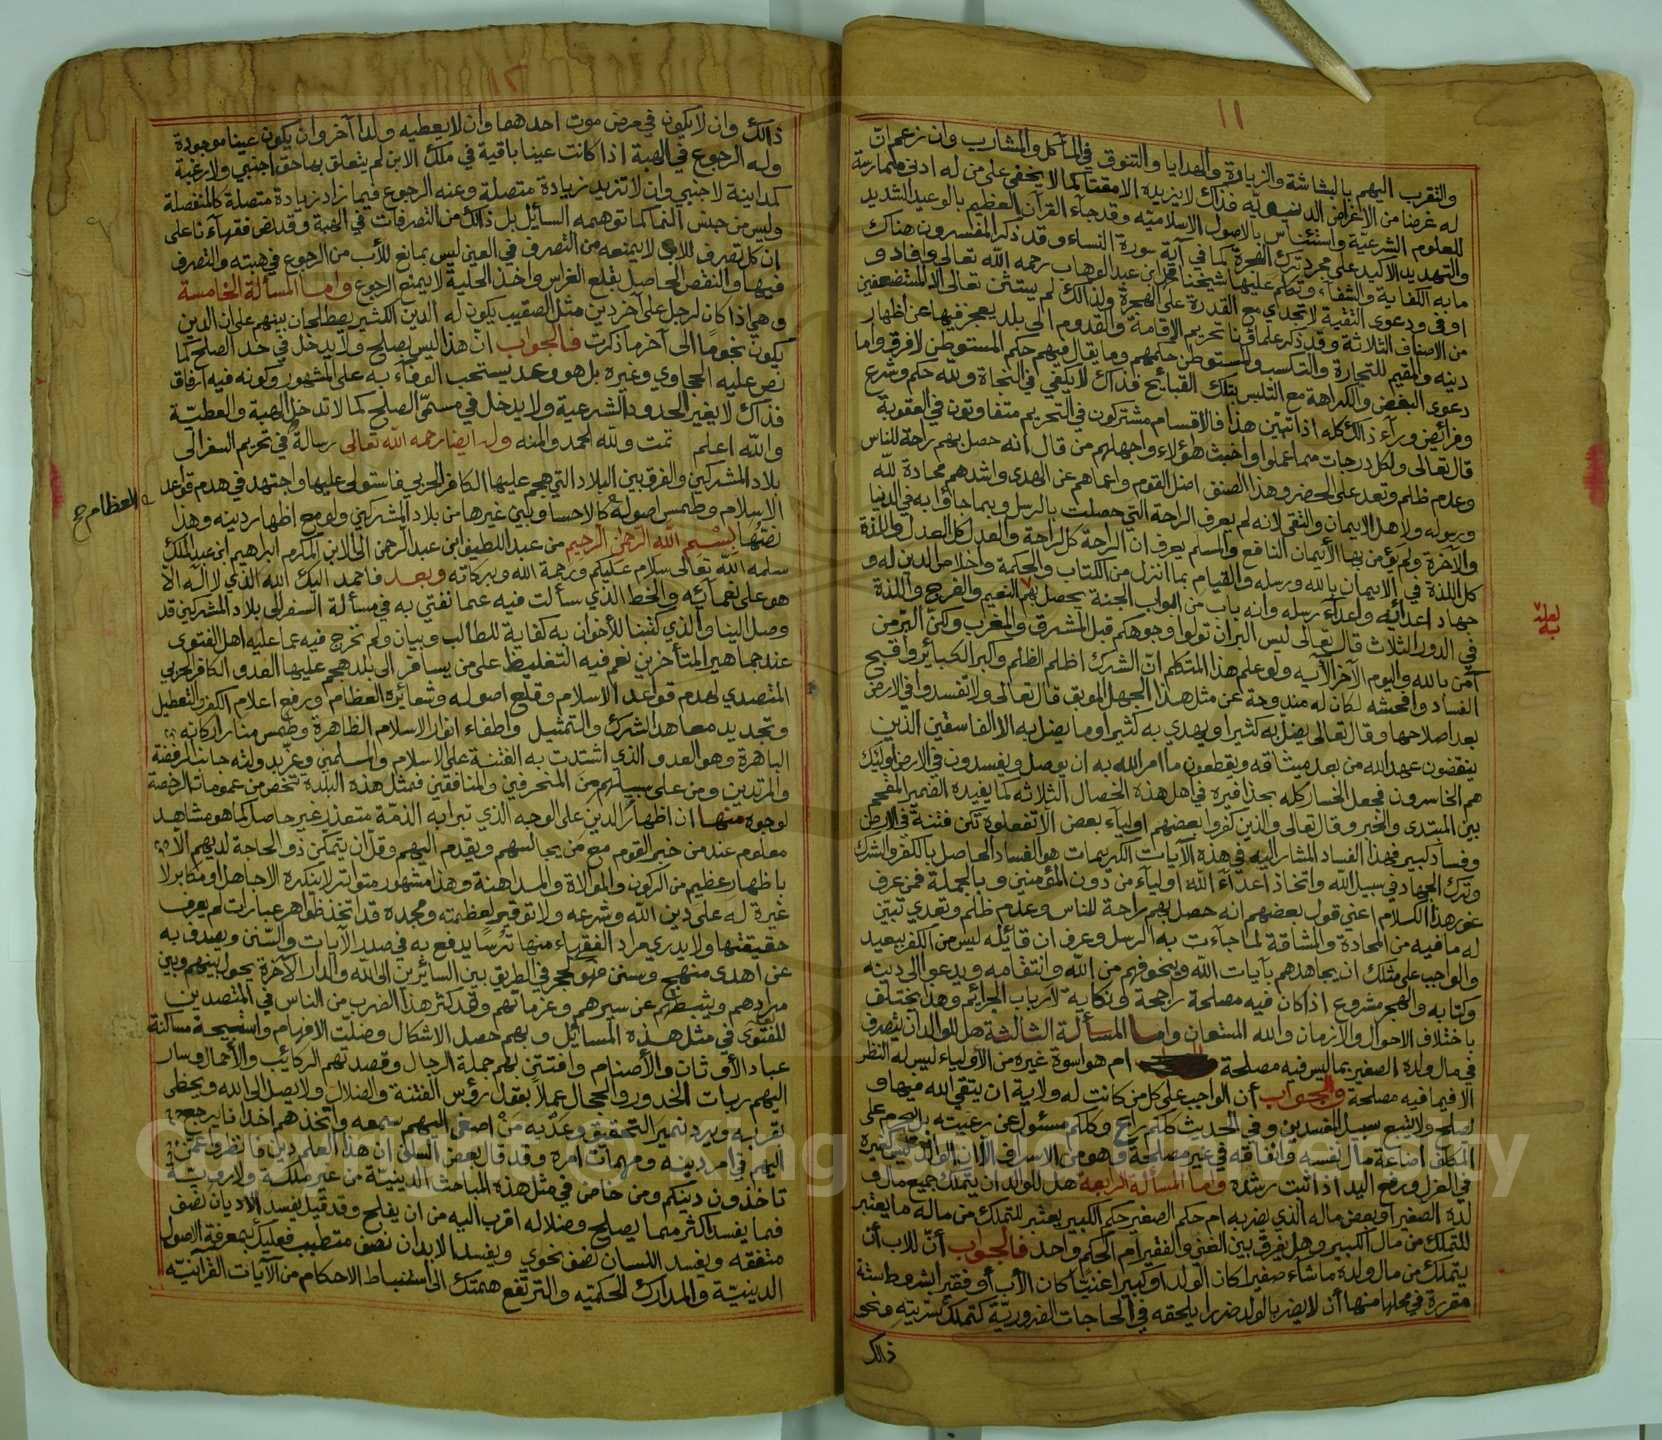 ١١
والتقرب اليهم بالبشاشة والزيارة والهدايا والتنوق في المآكل والمشارب وان زعم ان
له غرضا من الاغراض الدنيوية فذاك لا يزيده الا مقتا كما لا يخفى على من له ادنى ممارسة
للعلوم الشرعية واستئناس بالاصول الاسلاميه وقد جاء القرآن العظيم بالوعيد الشديد
والتهديد الاكيد على مجرد ترك الهجرة كما في آية سورة النساء وقد ذكر المفسرون هناك
ما به الكفاية والشفاء وتكلم عليها شيخنا محمد ابن عبد الوهاب رحمه الله تعالى وافاد و
اوفى ودعوى التقية لا تجدي مع القدرة على الهجرة ولذالك لم يستثن تعالى الا المستضعفين
من الاصناف الثلاثة وقد ذكر علماؤنا تحريم الاقامة والقدوم الى بلد يعجز فيها عن اظهار
دينه والمقيم للتجارة والتكسب والمستوطن حكمهم وما يقال فيهم حكم المستوطن لا فرق واما
دعوى البغض والكراهة مع التلبس بتلك القبائح فذاك لا يكفي في النجاة ولله حكم وشرع
وفرائض وراء ذالك كله اذا تبين هذا فالاقسام مشتركون في التحريم متفاوتون في العقوبة
قال تعالى ولكل درجات مما عملوا واخبث هؤلاء واجهلهم من قال انه حصل بهم راحة للناس
وعدم ظلم وتعد على الحضر وهذا الصنف اضل القوم واعماهم عن الهدى واشدهم محادة لله
ورسوله ولاهل الايمان والتقى لانه لم يعرف الراحة التي حصلت بالرسل وبما جاؤا به في الدنيا
والآخرة ولم يؤمن بها الأيمان النافع والمسلم يعرف ان الراحة كل الراحة والعدل كل العدل واللذة
كل اللذة في الايمان بالله ورسله والقيام بما انزل من الكتاب والحكمة واخلاص الدين له و
جهاد اعدائه واعداء رسله وانه باب من ابواب الجنة يحصل بهم النعيم والفرح واللذة
في الدور الثلاث قال تعالى ليس البر ان تولوا وجوهكم قبل المشرق والمغرب ولكن البر من
آمن بالله واليوم الآخر الآيه ولو علم هذا المتكلم ان الشرك اظلم الظلم واكبر الكبائر واقبح
الفساد وافحشه لكان له مندوحة عن مثل هذا الجهل الموبق قال تعالى ولا تفسدوا في الارض
بعد اصلاحها وقال تعالى يضل به كثيرا ويهدي به كثيرا وما يضل به الا الفاسقين الذين
ينقضون عهد الله من بعد ميثاقه ويقطعون ما امر الله به ان يوصل ويفسدون في الارض اولئك
هم الخاسرون فجعل الخسار كله بحذافيره في اهل هذه الخصال الثلاثه كما يفيده الضمير المقحم
بين المبتدى والخبر وقال تعالى والذين كفروا بعضهم اولياء بعض الا تفعلوه تكن فتنة في الارض
وفساد كبير فهذا الفساد المشار اليه في هذه الآيات الكريمات هو الفساد الحاصل بالكفر والشرك
وترك الجهاد في سبيل الله واتخاذ اعداء الله اولياء من دون المؤمنين وبالجملة فمن عرف
غور هذا الكلام اعني قول بعضهم انه حصل بهم راحة للناس وعدم ظلم وتعدي تبين
له ما فيه من المحادة والمشاقة لما جاءت به الرسل وعرف ان قائله ليس من الكفر ببعيد
والواجب على مثلك ان يجاهدهم بآيات الله ويخوفهم من الله وانتقامه ويدعو الى دينه
وكتابه والهجر مشروع اذا كان فيه مصلحة راجحة ونكاية لارباب الجرائم وهذا يختلف
باختلاف الاحوال والازمان والله المستعان واما المسألة الثالثة هل للوالد ان يتصرف
في مال ولده الصغير بما ليس فيه مصلحة ام هو اسوة غيره من الاولياء ليس له النظر
الا فيما فيه مصلحة والجواب أن الواجب على كل من كانت له ولاية ان يتقي الله فيها و
يصلح ولا يتبع سبيل المفسدين وفي الحديث كلكم راع وكلكم مسئول عن رعيته بل يحرم على
المكلف اضاعة مال نفسه وانفاقه في غير مصلحة وهو من الاسراف الا ان الوالد ليس كغيره
في العزل ورفع اليد اذا ثبت رشده واما المسألة الرابعة هل للوالد ان يتملك جميع مال و
لده الصغير او بعض ماله الذي يضر به ام حكم الصغير حكم الكبير يعتبر للتملك من ماله ما يعتبر
للتملك من مال الكبير وهل يفرق بين الغني والفقير ام الحكم واحد فالجواب أن للاب أن
يتملك من مال ولده ما شاء صغيرا كان الولد او كبيرا غنيا كان الأب أو فقير ابشروط ستة
مقررة في محلها منها أن لا يضر بالولد ضررا يلحقه في الحاجات الضروريه كتملك سريته ونحو
ذالك
لعله
به
١٢
ذالك وان لا يكون في مرض موت احدهما وان لا يعطيه ولدا آخر وان يكون عينا موجودة
وله الرجوع في الهبة اذا كانت عينا باقية في ملك الابن لم يتعلق بها حق اجنبي ولا رغبة
كمداينة لاجنبي وان لا تزيد زيادة متصلة وعنه الرجوع فيما زاد زيادة متصلة كالمنفصلة
وليس من جنس النما كما توهمه السائل بل ذالك من التصرفات في الهبة وقد نص فقهاءنا على
ان كل تصرف للابن لا يمنعه من التصرف في العين ليس بمانع للأب من الرجوع في هبته والتصرف
فيها والنقص الحاصل بقلع الغراس واخذ الحلية لا يمنع الرجوع واما المسألة الخامسة
وهي اذا كان لرجل على آخر دين مثل الصقيب يكون له الدين الكثير يصطلحان بينهم على ان الدين
يكون نجوما الى آخر ما ذكرت فالجواب ان هذا ليس بصلح ولا يدخل في حد الصلح كما
نص عليه الحجاوي وغيره بل هو وعد يستحب الوفاء به على المشهور وكونه فيه ارفاق
فذاك لا يغير الحدود الشرعية ولا يدخل في مسمى الصلح كما لا تدخل الهبة والعطيّة
والله اعلم تمت ولله الحمد والمنه وله ايضا رحمه الله تعالى رسالة في تحريم السفر الى
بلاد المشركين والفرق بين البلاد التي هجم عليها الكافر الحربي فاستولى عليها واجتهد في هدم قواعد
الاسلام وطمس اصوله كالاحسا وبين غيرها من بلاد المشركين ولو مع اظهار دينه وهذا
نصّها بسم الله الرحمن الرحيم من عبد اللطيف ابن عبد الرحمن الى الابن المكرم ابراهيم ابن عبد الملك
سلمه الله تعالى سلام عليكم ورحمة الله وبركاته وبعد فاحمد اليك الله الذي لا اله الا
هو على نعمائه والخط الذي سألت فيه عما نفتي به في مسألة السفر الى بلاد المشركين قد
وصل الينا والذي كتبنا للأخوان به كفاية للطالب وبيان ولم نخرج فيه عما عليه اهل الفتوى
عند جماهير المتأخرين نعم فيه التغليظ على من يسافر الى بلد هجم عليها العدو الكافر الحربي
المتصدي لهدم قواعد الاسلام وقلع اصوله وشعائره العظام ورفع اعلام الكفر والتعطيل
وتجديد معاهد الشرك والتمثيل واطفاء انوار الاسلام الظاهرة وطمس منار اركانه
الباهرة وهو العدو الذي اشتدت به الفتنة على الاسلام والمسلمين وعز بدولته جانب الرفضة
والمرتدين ومن على سبيلهم من المنحرفين والمنافقين فمثل هذه البلدة تخص من عمومات الرخصة
لوجوه منها ان اظهار الدين على الوجه الذي تبرا به الذمّة متعذر غير حاصل كما هو مشاهد
معلوم عند من خبر القوم مع من يجالسهم ويقدم اليهم وقل ان يتمكن ذو الحاجة لديهم الا
باظهار عظيم من الركون والموالاة والمداهنة وهذا مشهور متواتر لا ينكره الا جاهل او مكابر لا
غيرة له على دين الله وشرعه ولا توقير لعظمته ومجده قد اتخذ ظواهر عبارات لم يعرف
حقيقتها ولا يدري مراد الفقهاء منها ترسا يدفع به في صدر الآيات والسنن ويصدف به
عن اهدى منهج وسنن فهو كحجر في الطريق بين السائرين الى الله والدار الآخرة يحول بينهم وبين
مرادهم ويثبطهم عن سيرهم وعزماتهم وقد كثر هذا الضرب من الناس في المتصدين
للفتوى في مثل هذه المسائل وبهم حصل الاشكال وضلت الافهام واستبيحة مساكنة
عباد الأوثان والأصنام وافتتن بهم جملة الرجال وقصدتهم الركائب والأحمال وسار
اليهم ربات الخدور والحجال عملا بقول رؤس الفتنة والضلال ولا يصل الى الله ويحظى
بقربه ويرد نمير التحقيق وعذبه من اصغى اليهم سمعه واتخذهم اخدانا يرجع
اليهم في امر دينه ومهمات امره وقد قال بعض السلف ان هذا العلم دين فانظروا عمن
تأخذون دينكم ومن خاض في مثل هذه المباحث الدينية من غير ملكة ولا رويّة
فما يفسد اكثر مما يصلح وضلاله اقرب اليه من ان يفلح وقد قيل يفسد الاديان نصف
متفقه ويفسد اللسان نصف نحوي ويفسد الابدان نصف متطبب فعليك بمعرفة الاصول
الدينيّة والمدارك الحكمتيه والترتفع همتك الى استنباط الاحكام من الآيات القرآنيّه
العظام صح